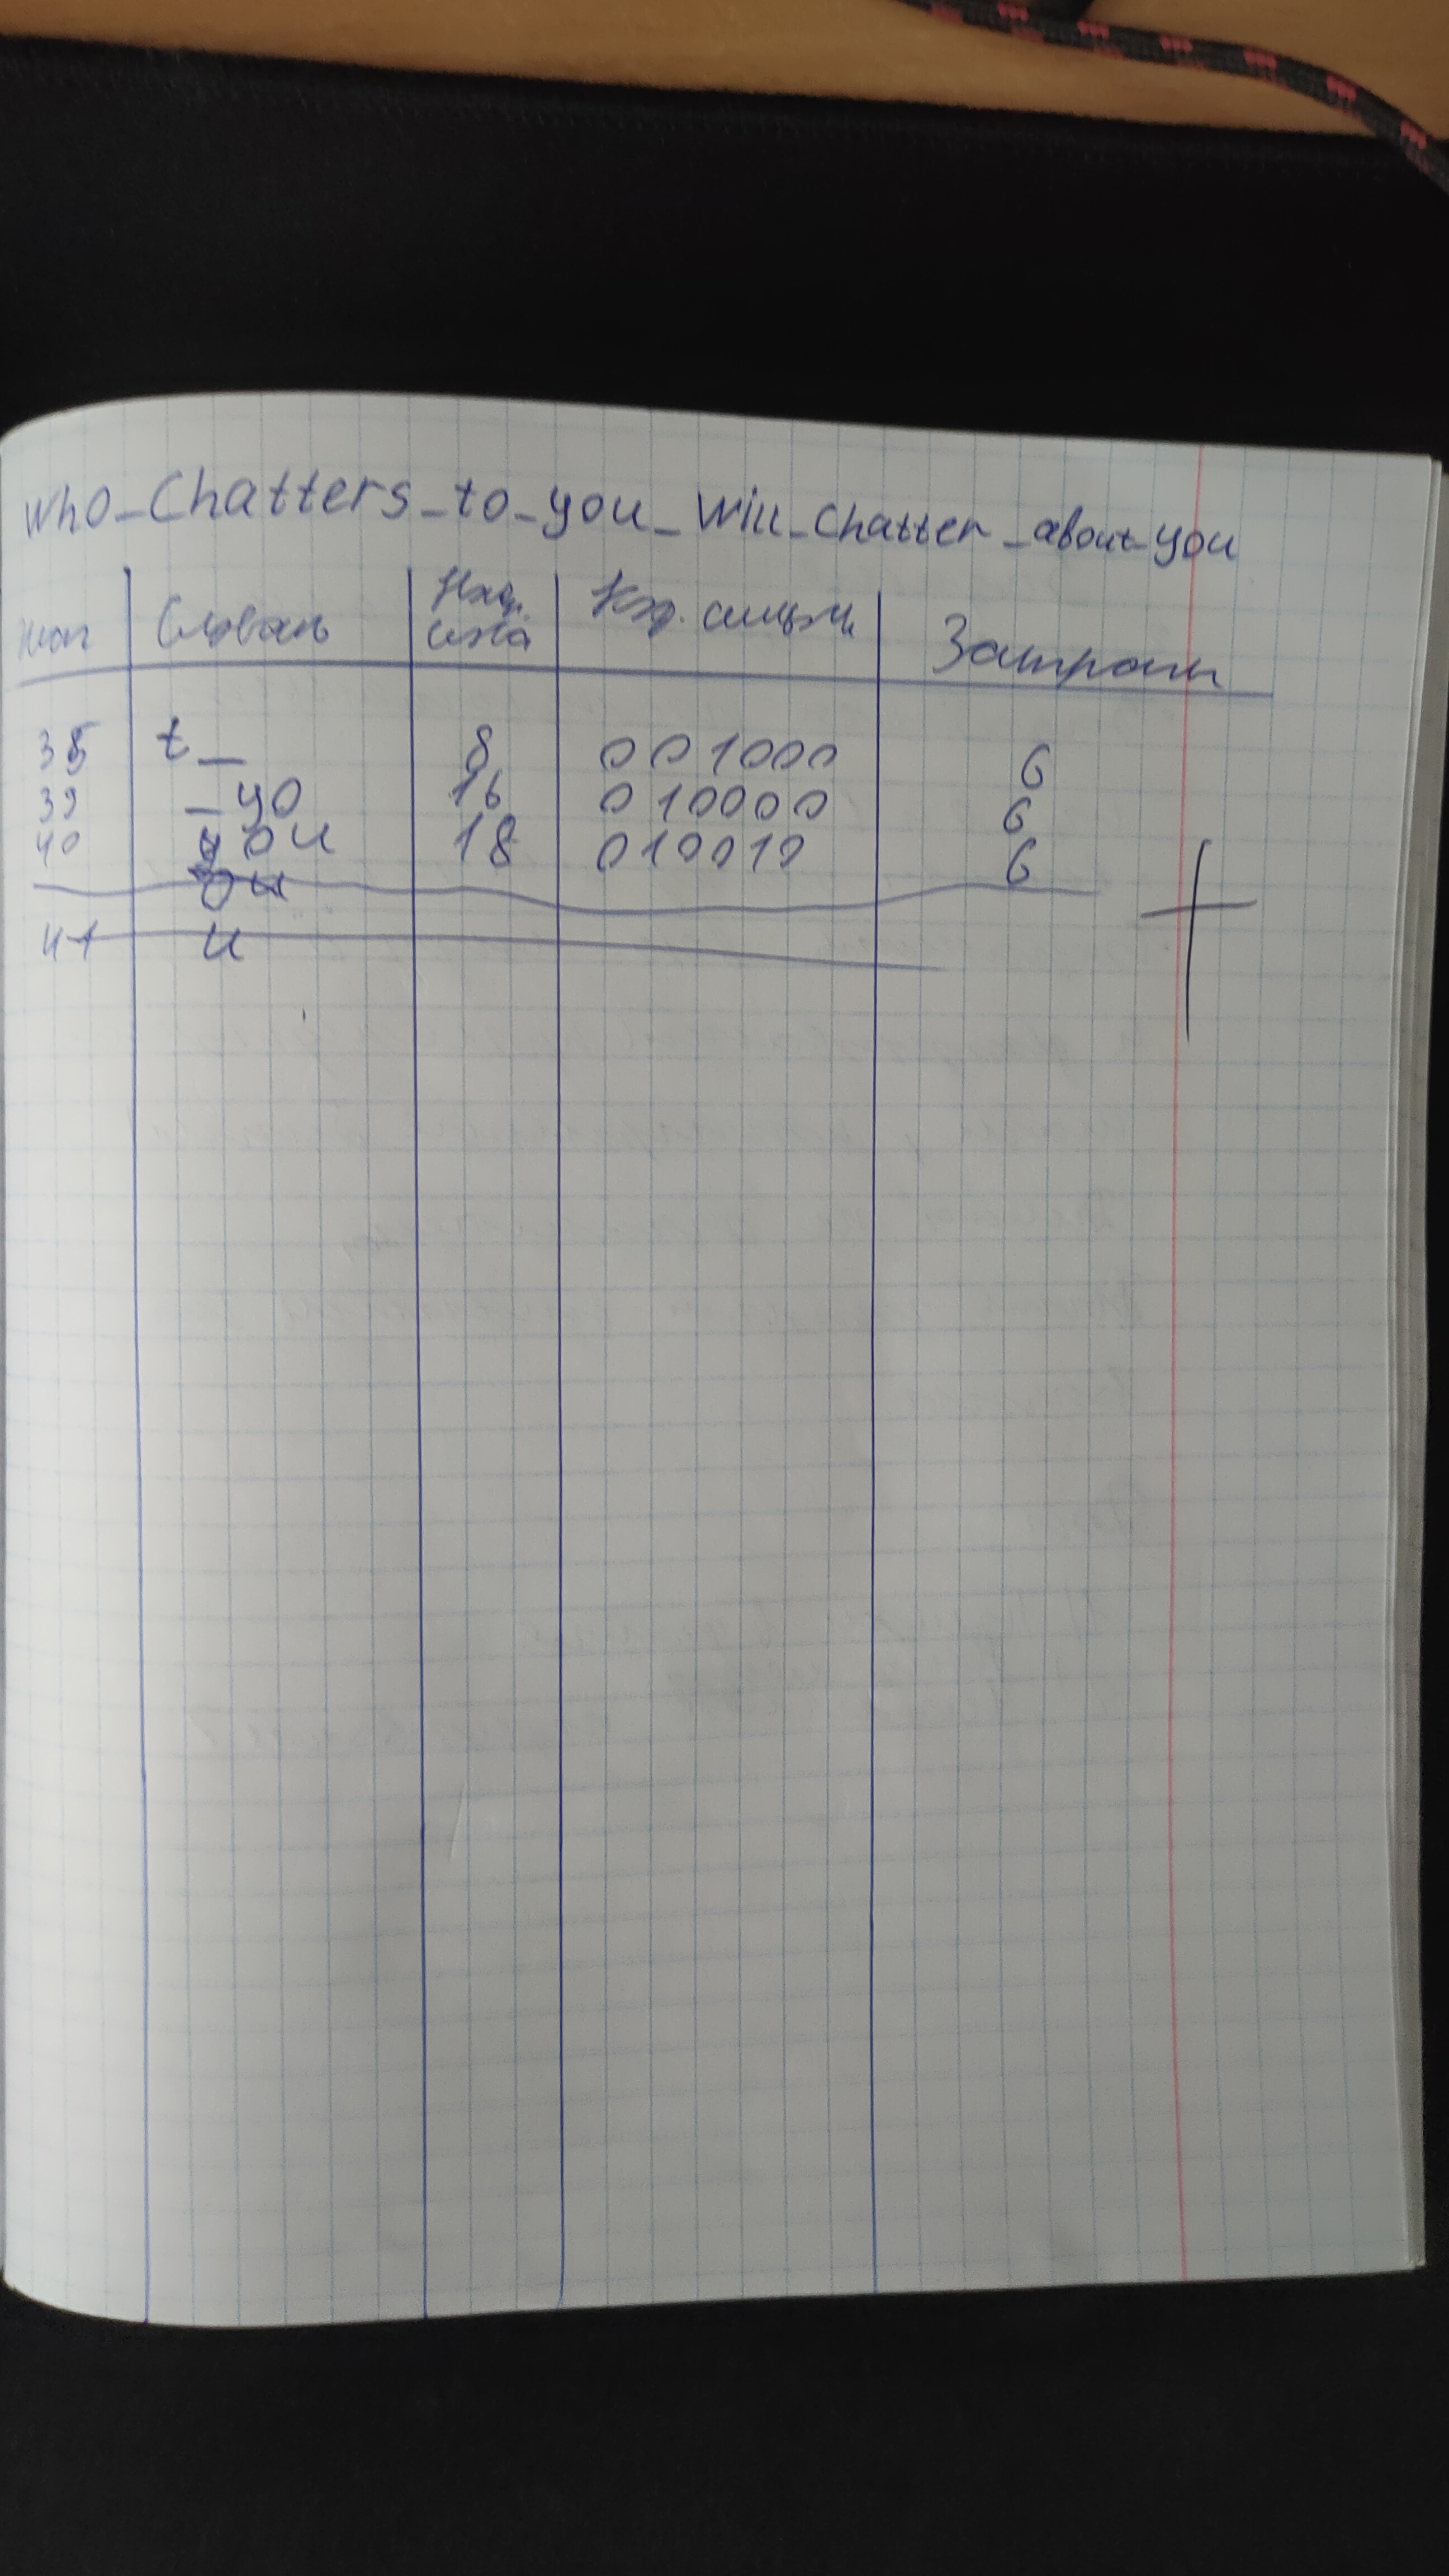 Who_Chatters_to_you_Will_Chatter_about_you
Шаг Словарь Код. симвл Затраты
38 t_ 8 001000 6
39 _yo 16 010000 6
40 you 18 010010 6
ou
41 u